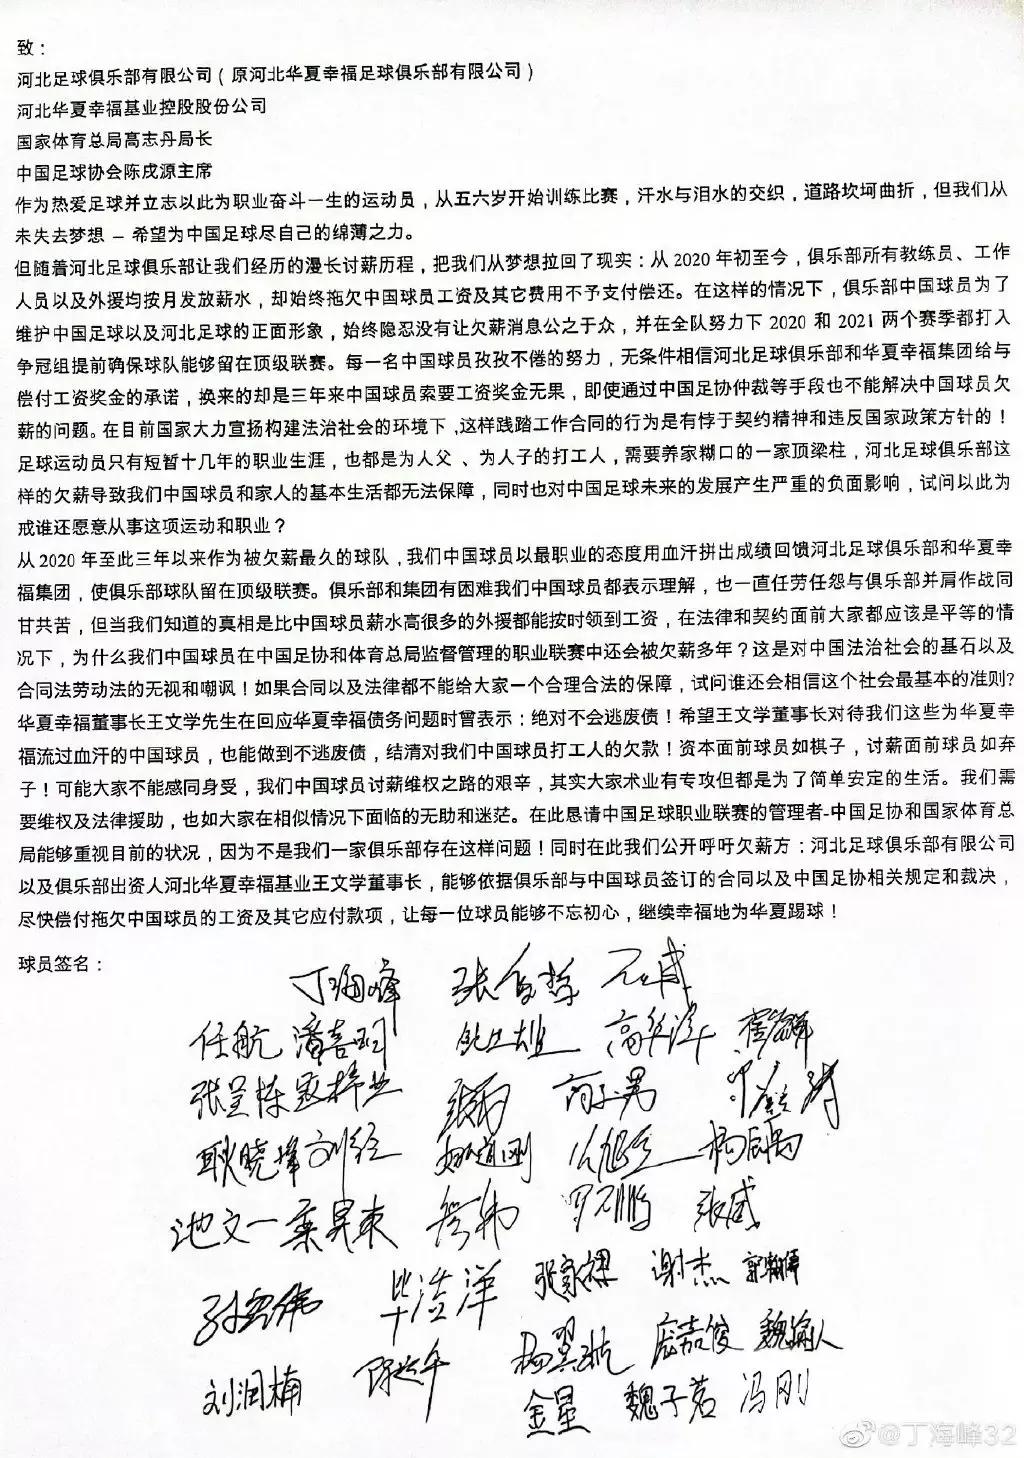 致：
河北足球俱乐部有限公司（原河北华夏幸福足球俱乐部有限公司）
河北华夏幸福基业控股股份公司
国家体育总局高志丹局长
中国足球协会陈戌源主席
作为热爱足球并立志以此为职业奋斗一生的运动员，从五六岁开始训练比赛，汗水与泪水的交织，道路坎坷曲折，但我们从
未失去梦想 – 希望为中国足球尽自己的绵薄之力。
但随着河北足球俱乐部让我们经历的漫长讨薪历程，把我们从梦想拉回了现实：从 2020 年初至今，俱乐部所有教练员、工作
人员以及外援均按月发放薪水，却始终拖欠中国球员工资及其它费用不予支付偿还。在这样的情况下，俱乐部中国球员为了
维护中国足球以及河北足球的正面形象，始终隐忍没有让欠薪消息公之于众，并在全队努力下 2020 和 2021 两个赛季都打入
争冠组提前确保球队能够留在顶级联赛。每一名中国球员孜孜不倦的努力，无条件相信河北足球俱乐部和华夏幸福集团给与
偿付工资奖金的承诺，换来的却是三年来中国球员索要工资奖金无果，即使通过中国足协仲裁等手段也不能解决中国球员欠
薪的问题。在目前国家大力宣扬构建法治社会的环境下，这样践踏工作合同的行为是有悖于契约精神和违反国家政策方针的！
足球运动员只有短暂十几年的职业生涯，也都是为人父 、为人子的打工人，需要养家糊口的一家顶梁柱，河北足球俱乐部这
样的欠薪导致我们中国球员和家人的基本生活都无法保障，同时也对中国足球未来的发展产生严重的负面影响，试问以此为
戒谁还愿意从事这项运动和职业？
从 2020 年至此三年以来作为被欠薪最久的球队，我们中国球员以最职业的态度用血汗拼出成绩回馈河北足球俱乐部和华夏幸
福集团，使俱乐部球队留在顶级联赛。俱乐部和集团有困难我们中国球员都表示理解，也一直任劳任怨与俱乐部并肩作战同
甘共苦，但当我们知道的真相是比中国球员薪水高很多的外援都能按时领到工资，在法律和契约面前大家都应该是平等的情
况下，为什么我们中国球员在中国足协和体育总局监督管理的职业联赛中还会被欠薪多年？这是对中国法治社会的基石以及
合同法劳动法的无视和嘲讽！如果合同以及法律都不能给大家一个合理合法的保障，试问谁还会相信这个社会最基本的准则?
华夏幸福董事长王文学先生在回应华夏幸福债务问题时曾表示：绝对不会逃废债！希望王文学董事长对待我们这些为华夏幸
福流过血汗的中国球员，也能做到不逃废债，结清对我们中国球员打工人的欠款！资本面前球员如棋子，讨薪面前球员如弃
子！可能大家不能感同身受，我们中国球员讨薪维权之路的艰辛，其实大家术业有专攻但都是为了简单安定的生活。我们需
要维权及法律援助，也如大家在相似情况下面临的无助和迷茫。在此恳请中国足球职业联赛的管理者-中国足协和国家体育总
局能够重视目前的状况，因为不是我们一家俱乐部存在这样问题！同时在此我们公开呼吁欠薪方：河北足球俱乐部有限公司
以及俱乐部出资人河北华夏幸福基业王文学董事长，能够依据俱乐部与中国球员签订的合同以及中国足协相关规定和裁决，
尽快偿付拖欠中国球员的工资及其它应付款项，让每一位球员能够不忘初心，继续幸福地为华夏踢球！
球员签名：
丁海峰
任航 潘喜明 鲍亚雄 高华泽
张呈栋
耿晓峰 刘经 杨启禹
池文一 栾昊东 罗石鹏 张威
毕浩洋 张家祺 谢杰 郭瀚儒
刘润楠 杨翼杭 应嘉俊
金星 魏子茗 冯刚
@丁海峰32